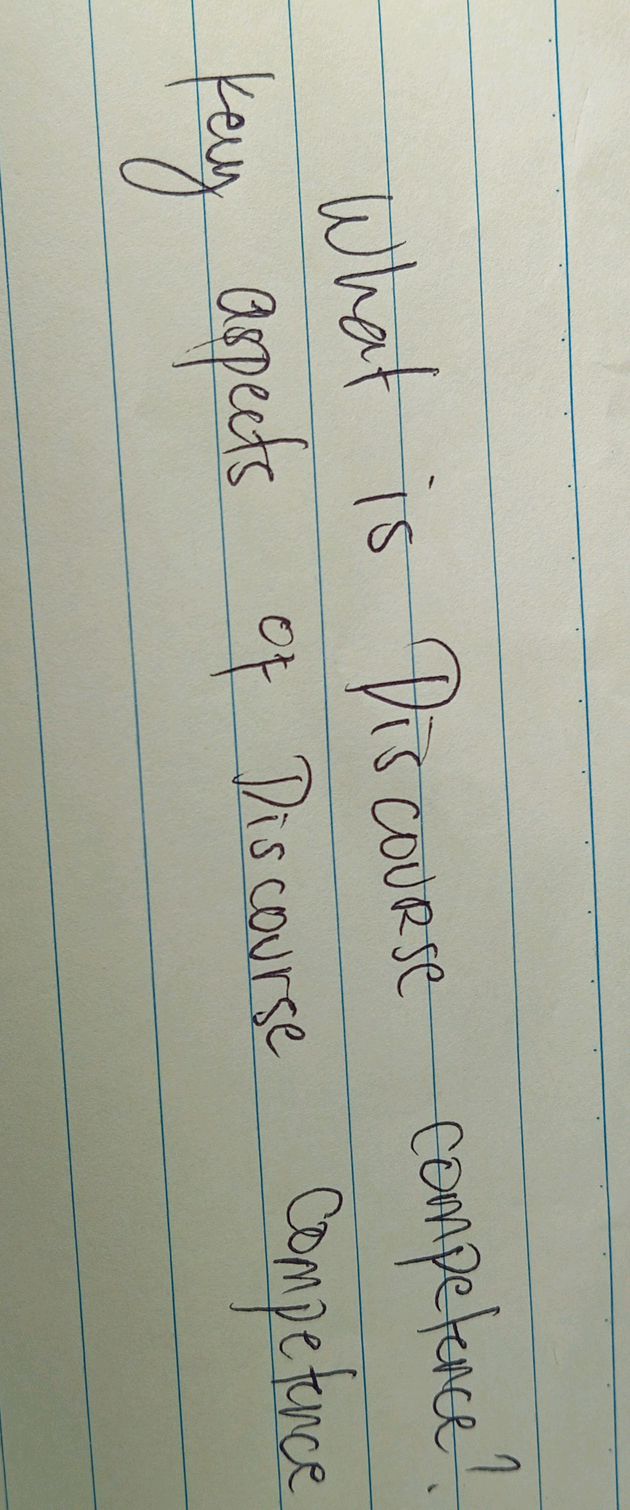 What is Discourse competence?
Key aspects of Discourse Competence